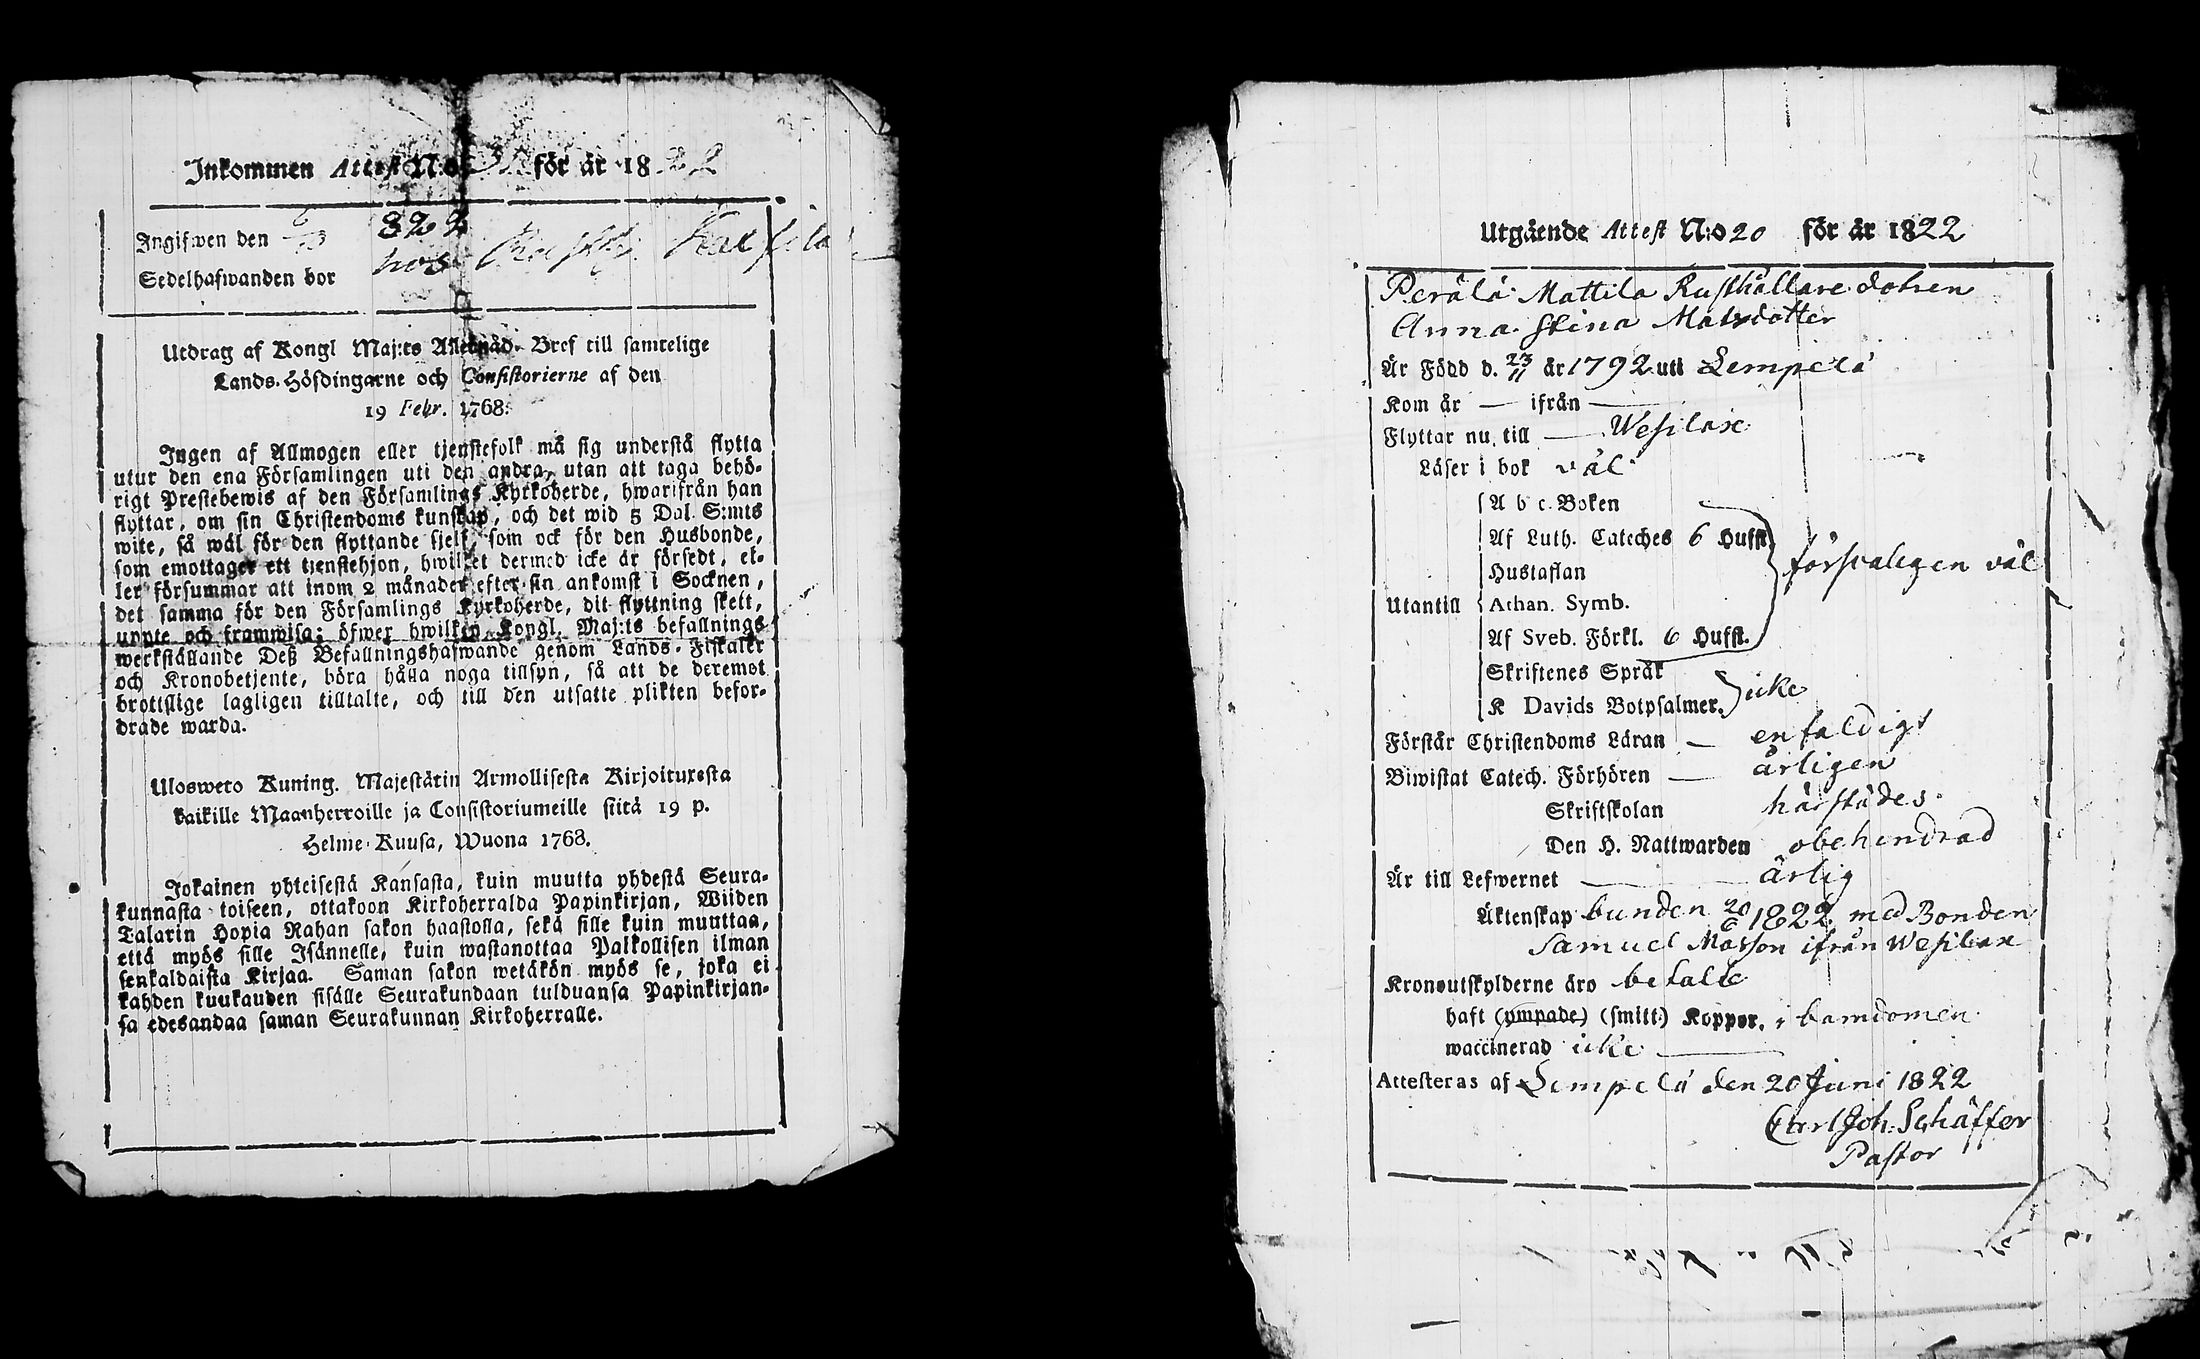 Inkommen Attest N:o för år 1822
Ingifwen den 822
Sedelhafwanden bor hos
Utdrag af Kongl Maj:ts Allernåd. Bref till samtelige
Lands-Höfdingarne och Consistorierne af den
19 Febr. 1768:
Ingen af Allmogen eller tjenstefolk må sig understå flytta
utur den ena Församlingen uti den andra, utan att taga behö-
rigt Prestebewis af den Församlings Kyrkoherde, hwarifrån han
flyttar, om sin Christendoms kunskap, och det wid 5 Dal. S:mts
wite, så wäl för den flyttande sjelf, som ock för den Husbonde,
som emottager ett tjenstehjon, hwilket dermed icke är försedt, el-
ler försummar att inom 2 månader efter sin ankomst i Socknen,
det samma för den Församlings Kyrkoherde, dit flyttning skett,
uppte och framwisa; öfwer hwilken Kongl. Maj:ts befallnings
werkställande Deß Befallningshafwande genom Lands-Fiskaler
och Kronobetjente, böra hålla noga tillsyn, så att de deremot
brottslige lagligen tilltalte, och till den utsatte plikten befor-
drade warda.
Ulosweto Kuning. Majestätin Armollisesta Kirjoituxesta
kaikille Maanherroille ja Consistoriumeille siitä 19 p.
Helme-Kuusa, Wuona 1768.
Jokainen yhteisestä Kansasta, kuin muutta yhdestä Seura-
kunnasta toiseen, ottakoon Kirkoherralda Papinkirjan, Wiiden
Talarin Hopia Rahan sakon haastolla, sekä sille kuin muuttaa,
että myös sille Isännelle, kuin wastanottaa Palkollisen ilman
senkaldaista Kirjaa. Saman sakon wetäkön myös se, joka ei
kahden kuukauden sisälle Seurakundaan tulduansa Papinkirjan-
sa edesandaa saman Seurakunnan Kirkoherralle.
Utgående Attest N:o 20 för år 1822
Perälä Mattila Rusthållare dotren
Anna Stina Matsdotter
Är Född d. 23/11 år 1792 uti Lempelä
Kom år — ifrån —
Flyttar nu till — Wesilax
Läser i bok väl
A b c. Boken
Af Luth. Cateches 6 Hufst.
Hustaflan
Utantill Athan. Symb.
Af Sveb. Förkl. 6 Hufst.
försvaligen väl
Skriftenes Språk
K Davids Botpsalmer. icke
Förstår Christendoms Läran — enfaldigt
Biwistat Catech. Förhören — årligen
Skriftskolan härstädes
Den H. Nattwarden obehindrad
Är till Lefwernet — ärlig
Äktenskap bunden 20/6 1822 med Bonden
Samuel Matsson ifrån Wesilax
Kronoutskylderne äro betalte
haft (ympade) (smitt.) Koppor. i barndomen
waccinerad icke —
Attesteras af Lempelä den 20 Juni 1822
Carl Joh. Schäffer
Pastor